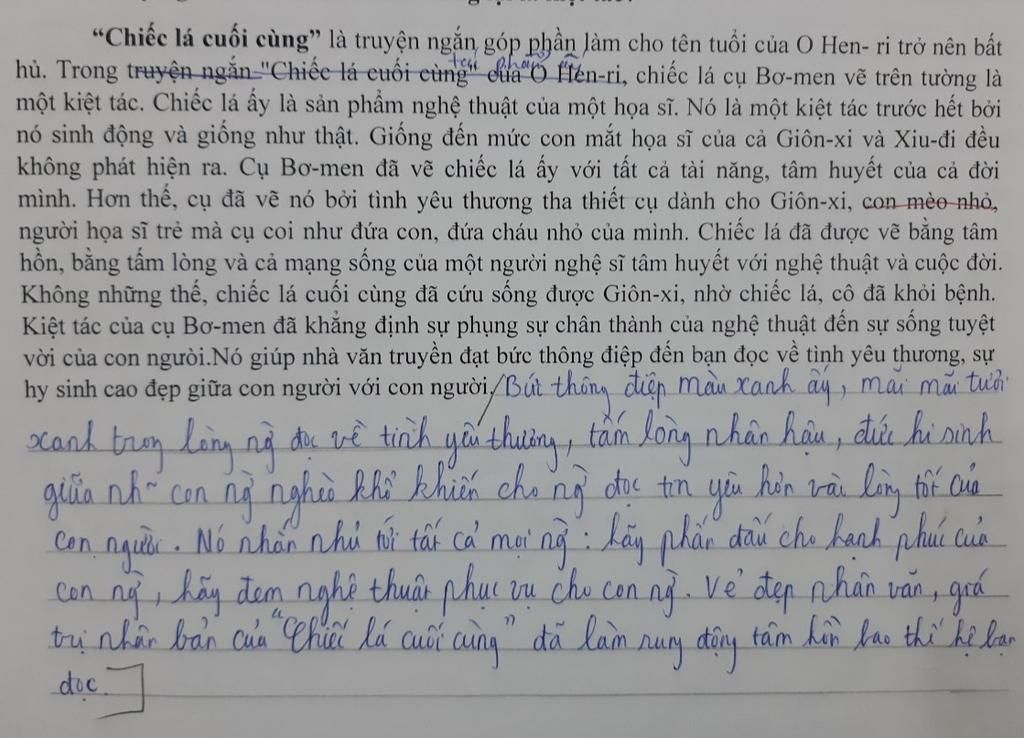 “Chiếc lá cuối cùng” là truyện ngắn góp phần làm cho tên tuổi của O Hen- ri trở nên bất
hủ. Trong truyện ngắn "Chiếc lá cuối cùng" của O Hen-ri, chiếc lá cụ Bơ-men vẽ trên tường là
một kiệt tác. Chiếc lá ấy là sản phẩm nghệ thuật của một họa sĩ. Nó là một kiệt tác trước hết bởi
nó sinh động và giống như thật. Giống đến mức con mắt họa sĩ của cả Giôn-xi và Xiu-đi đều
không phát hiện ra. Cụ Bơ-men đã vẽ chiếc lá ấy với tất cả tài năng, tâm huyết của cả đời
mình. Hơn thế, cụ đã vẽ nó bởi tình yêu thương tha thiết cụ dành cho Giôn-xi, con mèo nhỏ,
người họa sĩ trẻ mà cụ coi như đứa con, đứa cháu nhỏ của mình. Chiếc lá đã được vẽ bằng tâm
hồn, bằng tấm lòng và cả mạng sống của một người nghệ sĩ tâm huyết với nghệ thuật và cuộc đời.
Không những thế, chiếc lá cuối cùng đã cứu sống được Giôn-xi, nhờ chiếc lá, cô đã khỏi bệnh.
Kiệt tác của cụ Bơ-men đã khẳng định sự phụng sự chân thành của nghệ thuật đến sự sống tuyệt
vời của con người.Nó giúp nhà văn truyền đạt bức thông điệp đến bạn đọc về tình yêu thương, sự
hy sinh cao đẹp giữa con người với con người. Bức thông điệp màu xanh ấy, mãi mãi tươi
xanh trong lòng ng` đọc về tình yêu thương, tấm lòng nhân hậu, đức hi sinh
giữa nh~ con ng` nghèo khổ khiến cho ng` đọc tin yêu hơn vài lòng tốt của
con người. Nó nhắn nhủ tới tất cả mọi ng`: hãy phấn đấu cho hạnh phúc của
con ng`, hãy đem nghệ thuật phục vụ cho con ng`. Vẻ đẹp nhân văn, giá
trị nhân bản của "Chiếc lá cuối cùng" đã làm rung động tâm hồn bao thế hệ bạn
đọc.